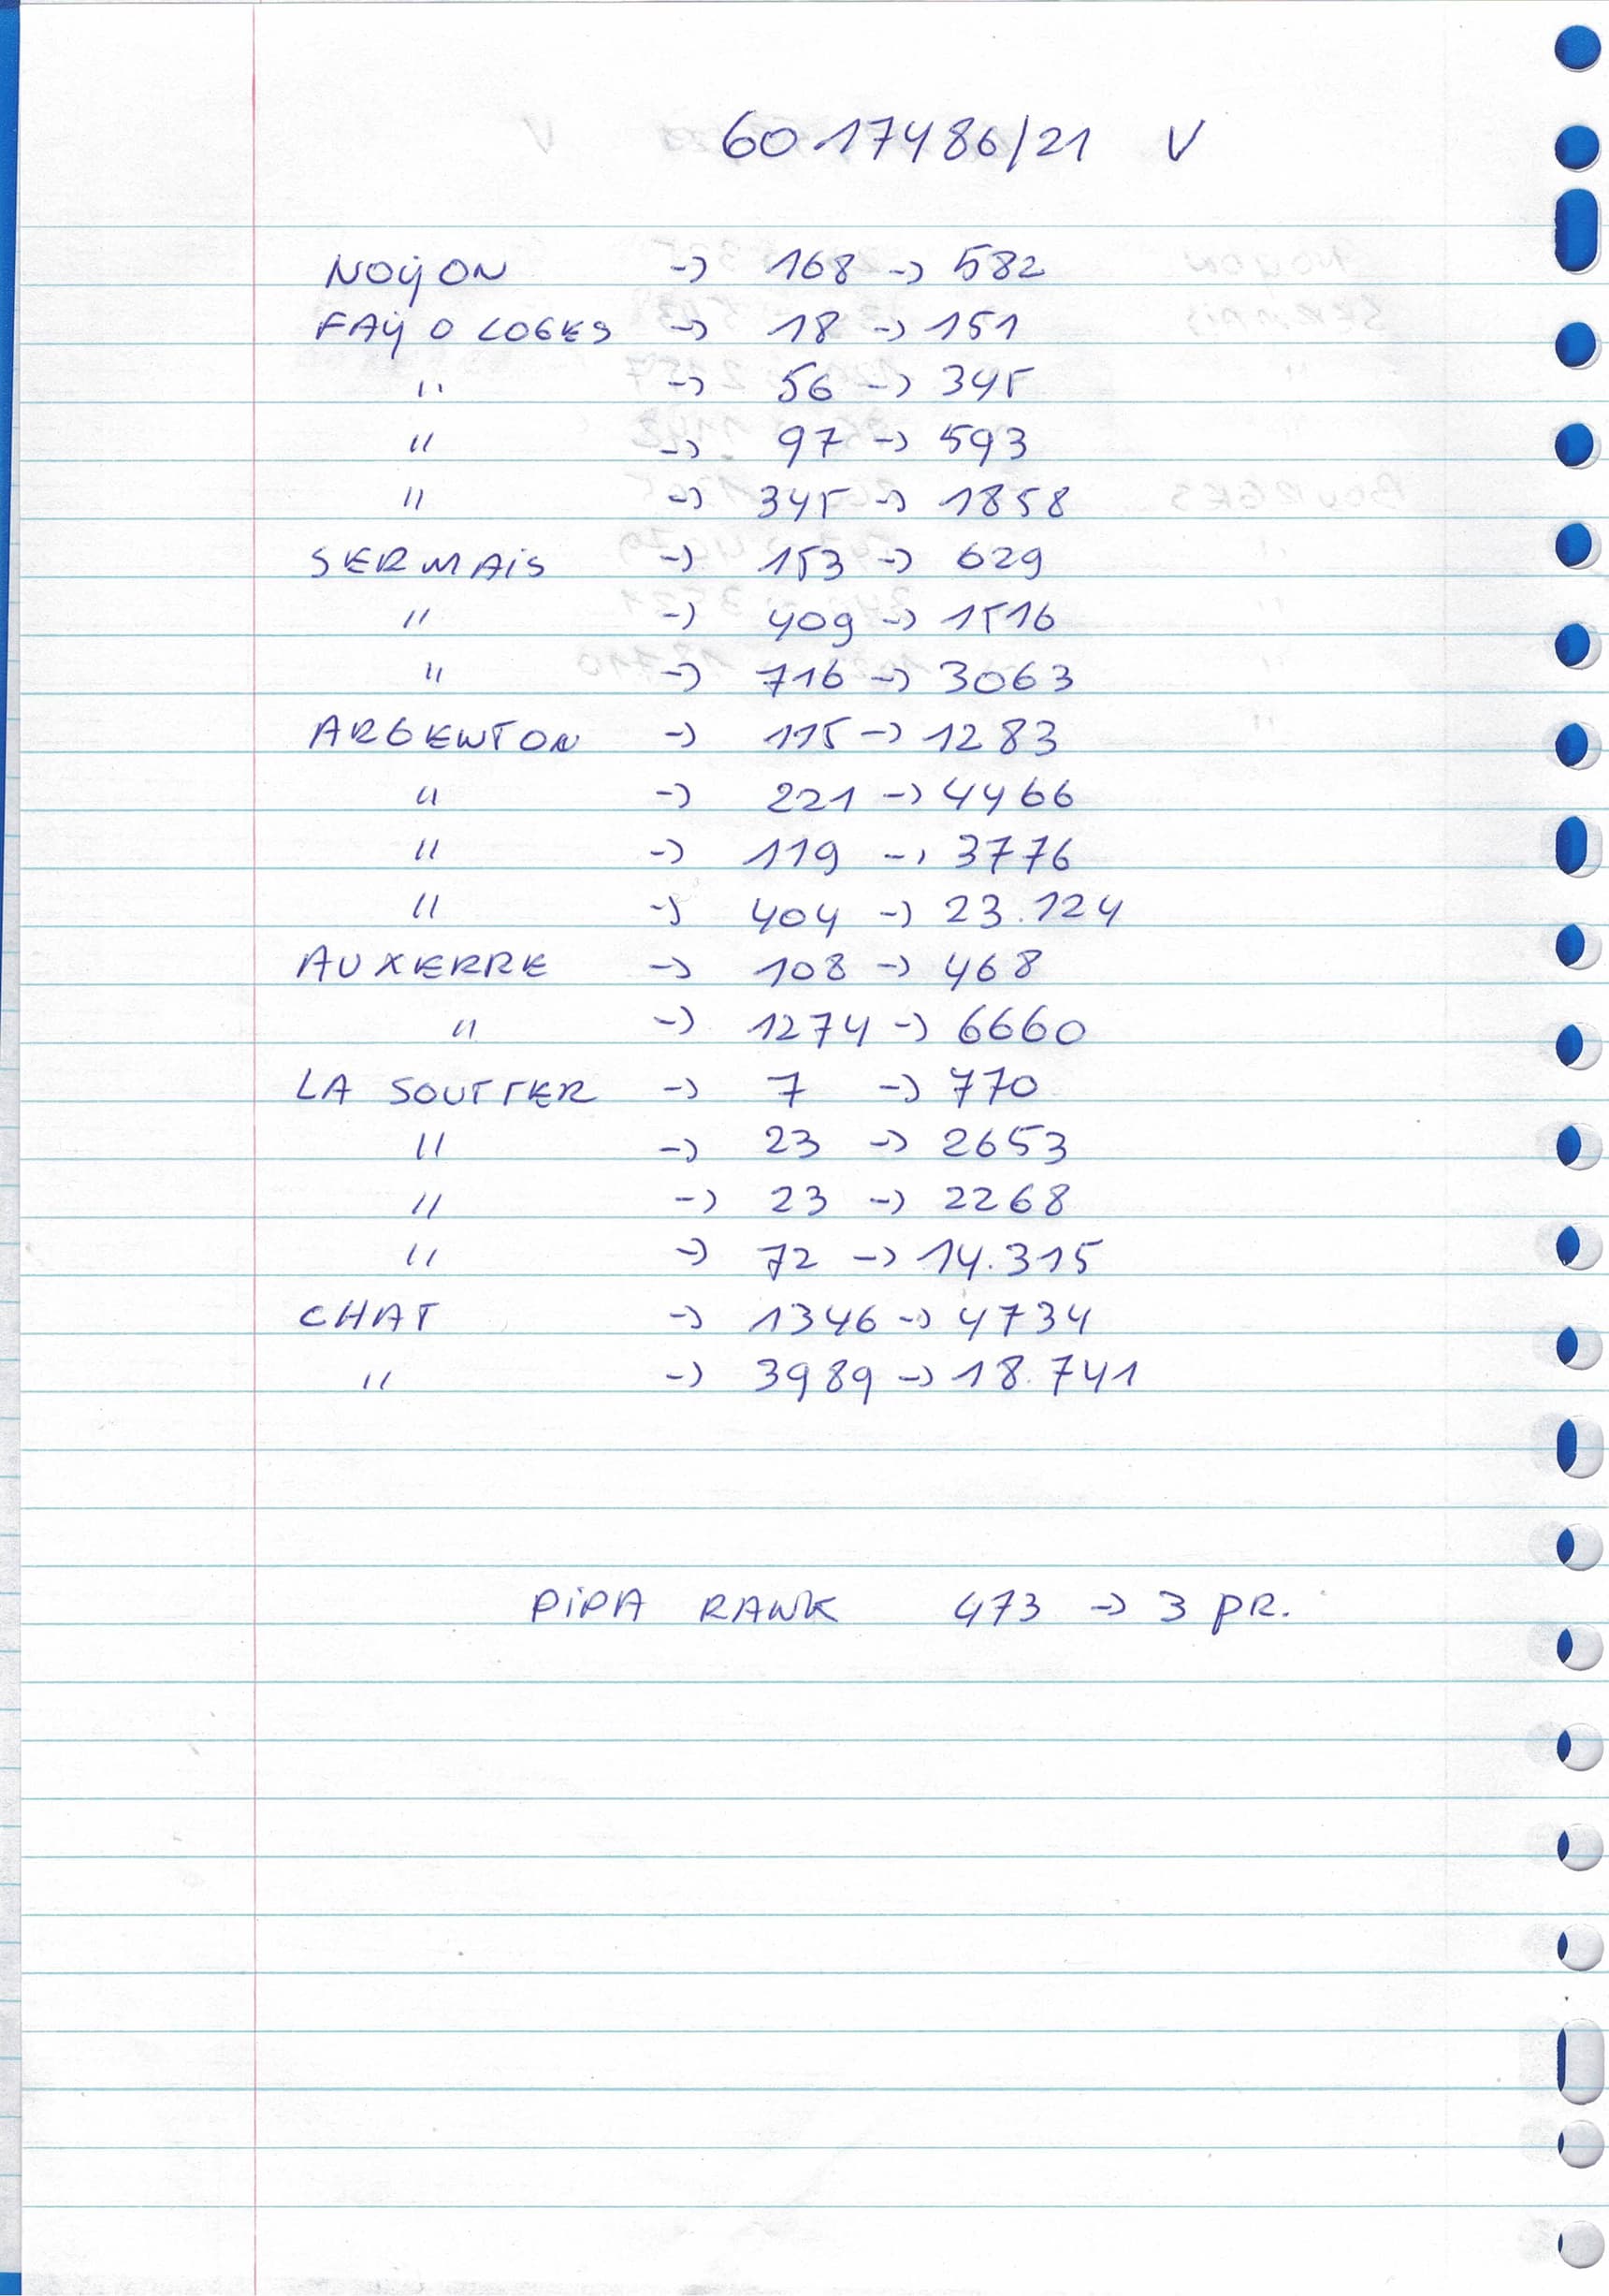 6017486/21 V
NOYON -> 168 -> 582
FAY O LOGES -> 18 -> 151
" -> 56 -> 345
" -> 97 -> 593
" -> 345 -> 1858
SERMAIS -> 153 -> 629
" -> 409 -> 1516
" -> 716 -> 3063
ARGENTON -> 115 -> 1283
" -> 221 -> 4466
" -> 119 -> 3776
" -> 404 -> 23.124
AUXERRE -> 108 -> 468
" -> 1274 -> 6660
LA SOUTTER -> 7 -> 770
" -> 23 -> 2653
" -> 23 -> 2268
" -> 72 -> 14.315
CHAT -> 1346 -> 4734
" -> 3989 -> 18.741
PIPA RANK 473 -> 3 PR.